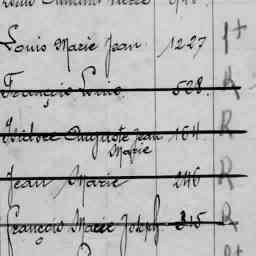 Louis Marie Jean 1227 1+
François Louis 528 R
Isidore Auguste Jean 164 R
Marie
Jean Marie 246 R
François Marie Joseph 315 R